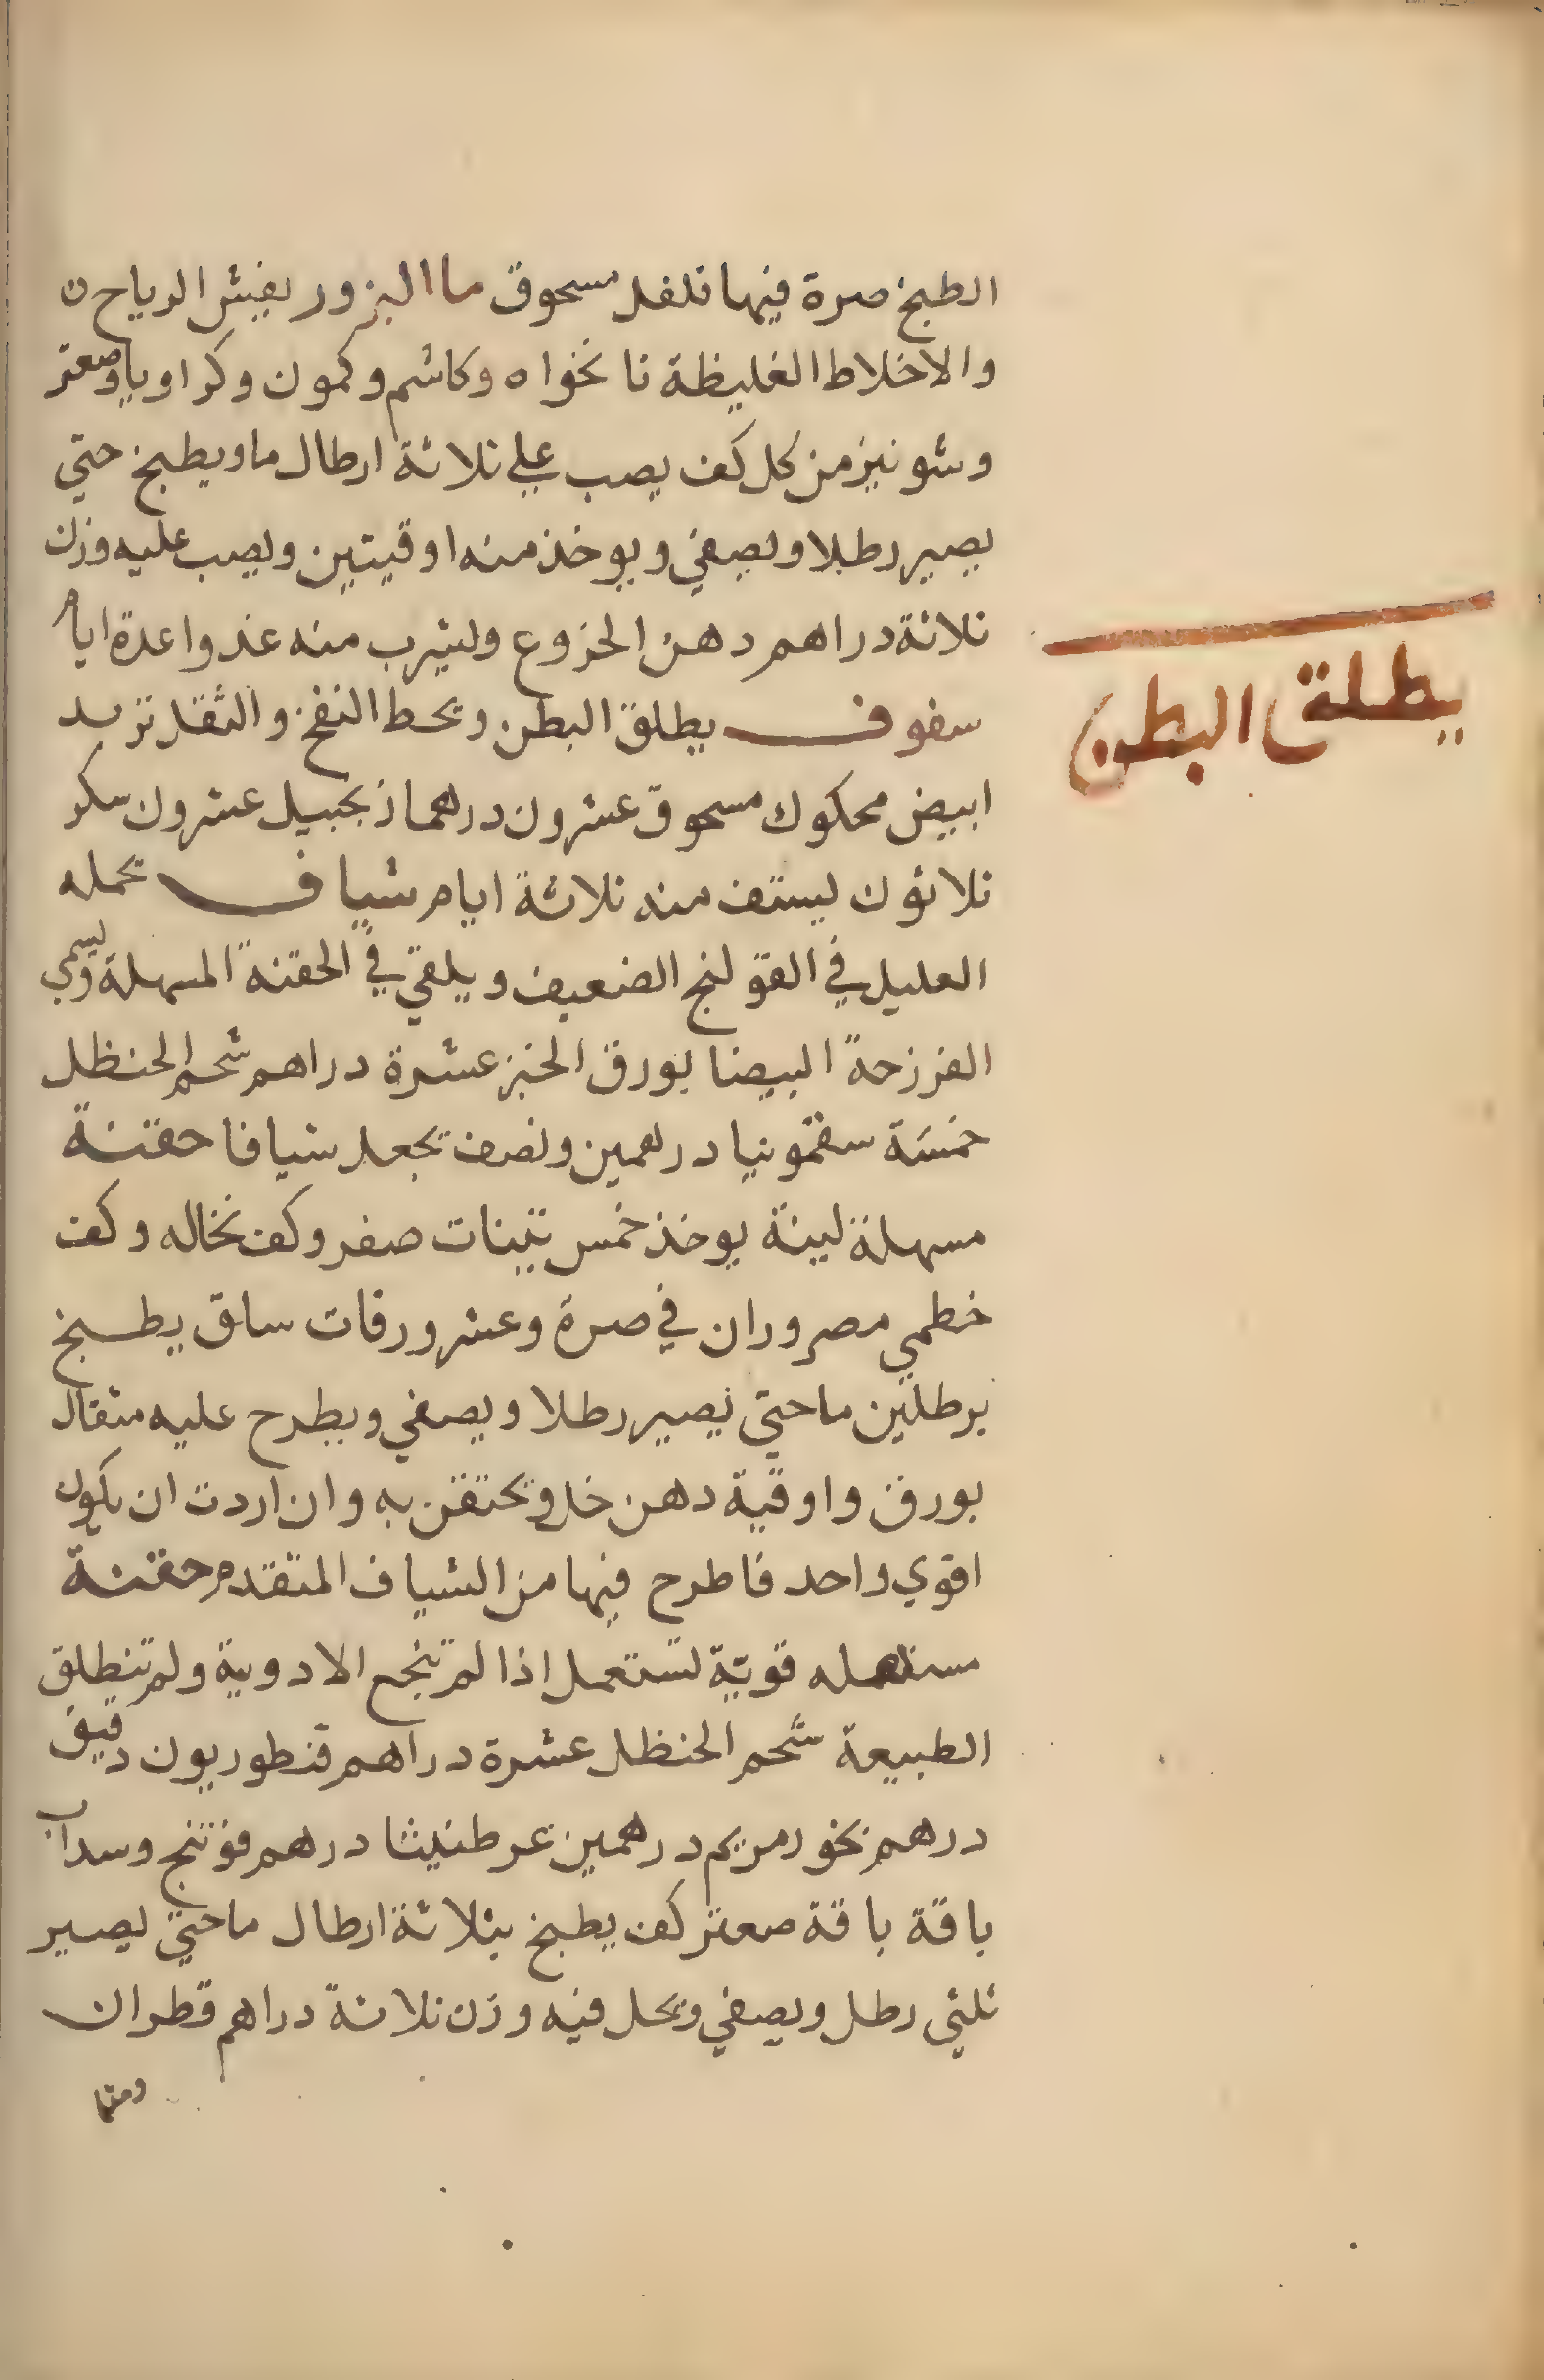 الطبخ صرة فيها فلفل مسحوق ما البزور يفيش الرياح ن
والاخلاط الغليظة نانخواه وكاشم وكمون وكراويا وصعتر
وشونيز من كل كف يصب علي ثلاثة ارطال ما ويطبخ حتي
يصير رطلا ويصفي ويوخذ منه اوقيتين ويصب عليه وزن
ثلاثة دراهم دهن الخروع ويشرب منه غدوا عدة ايام
يطلق البطن
سفوف يطلق البطن ويحط النفخ والثقل تربد
ابيض محكوك مسحوق عشرون درهما زنجبيل عشرون سكر
ثلاثون يستف منه ثلاثة ايام شياف تحمله
العليل في القولنج الضعيف ويلقي في الحقنة المسهلة ويسمي
الفرزحة البيضا بورق الخبز عشرة دراهم شحم الحنظل
خمسة سقمونيا درهمين ونصف تجعل شيافا حقنة
مسهلة لينة يوخذ خمس تينات صفر وكف نخاله وكف
خطمي مصروران في صرة وعشر ورقات سلق يطبخ
برطلين ما حتي يصير رطلا ويصفي ويطرح عليه مثقال
بورق واوقية دهن خل وتحتقن به وان اردت ان يكون
اقوي واحد فاطرح فيها من الشياف المتقدم حقنة
مسهله قوية تستعمل اذا لم تنجع الادوية ولم تنطلق
الطبيعة شحم الحنظل عشرة دراهم قنطوريون دقيق
درهم بخور مريم درهمين عرطنيثا درهم فوتنج وسداب
باقة باقة صعتر كف يطبخ بثلاثة ارطال ما حتي يصير
ثلثي رطل ويصفي ويحل فيه وزن ثلاثة دراهم قطران